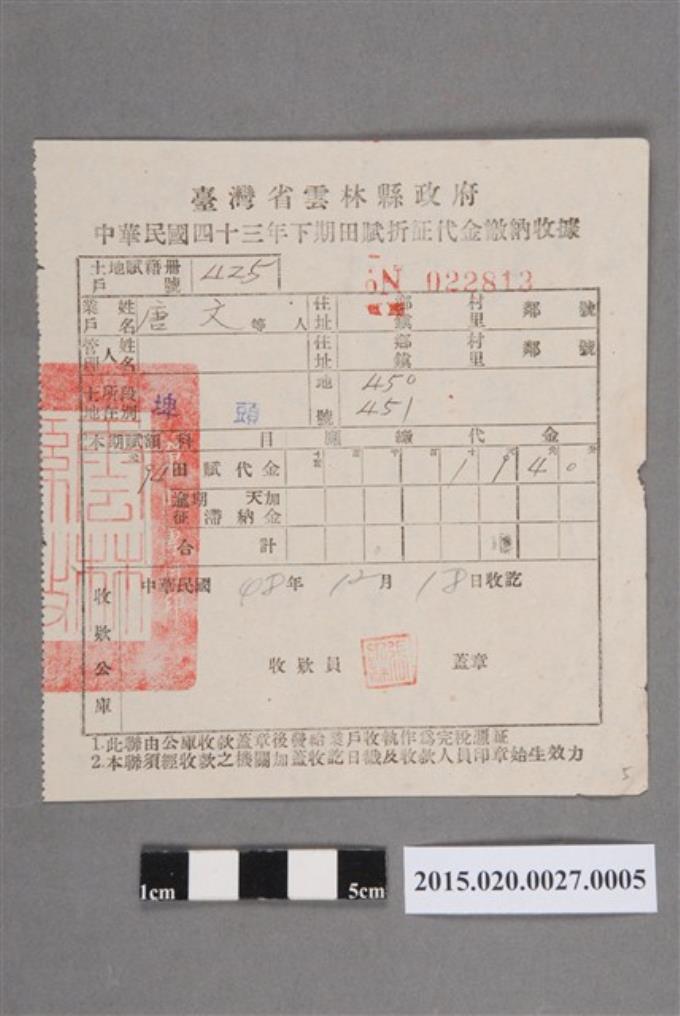 臺灣省雲林縣政府
中華民國四十三年下期田賦折征代金繳納收據
土地賦籍冊戶號 425
No 022813
業戶姓名 唐文 等 人 住址 鄉鎮 村里 鄰 號
管理人姓名 住址 鄉鎮 村里 鄰 號
土地所在段別 埤頭 地號 450 451
本期賦額 科目 應繳代金
94 田賦代金 1 9 4 0
逾期 天加征滯納金
合計
中華民國 48年 12月 18日收訖
收款公庫
收款員 蓋章
1.此聯由公庫收款蓋章後發給業戶收執作為完稅憑証
2.本聯須經收款之機關加蓋收訖日戳及收款人員印章始生效力
5
1cm 5cm
2015.020.0027.0005